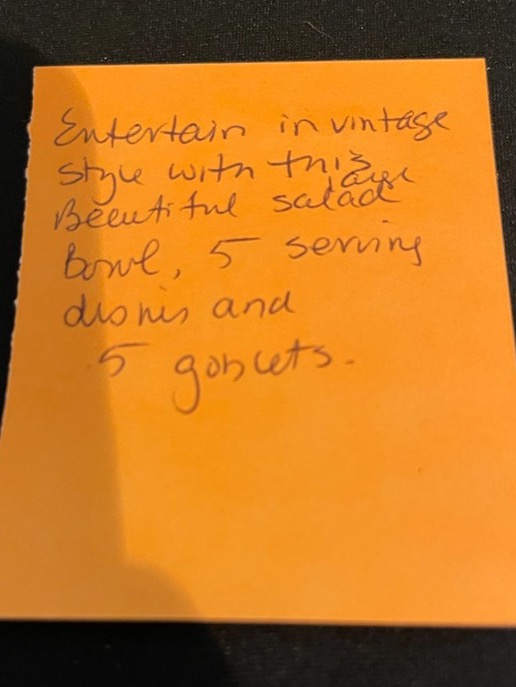 Entertain in vintage
style with this
Beautiful large salad
Bowl, 5 serving
dishes and
5 goblets.